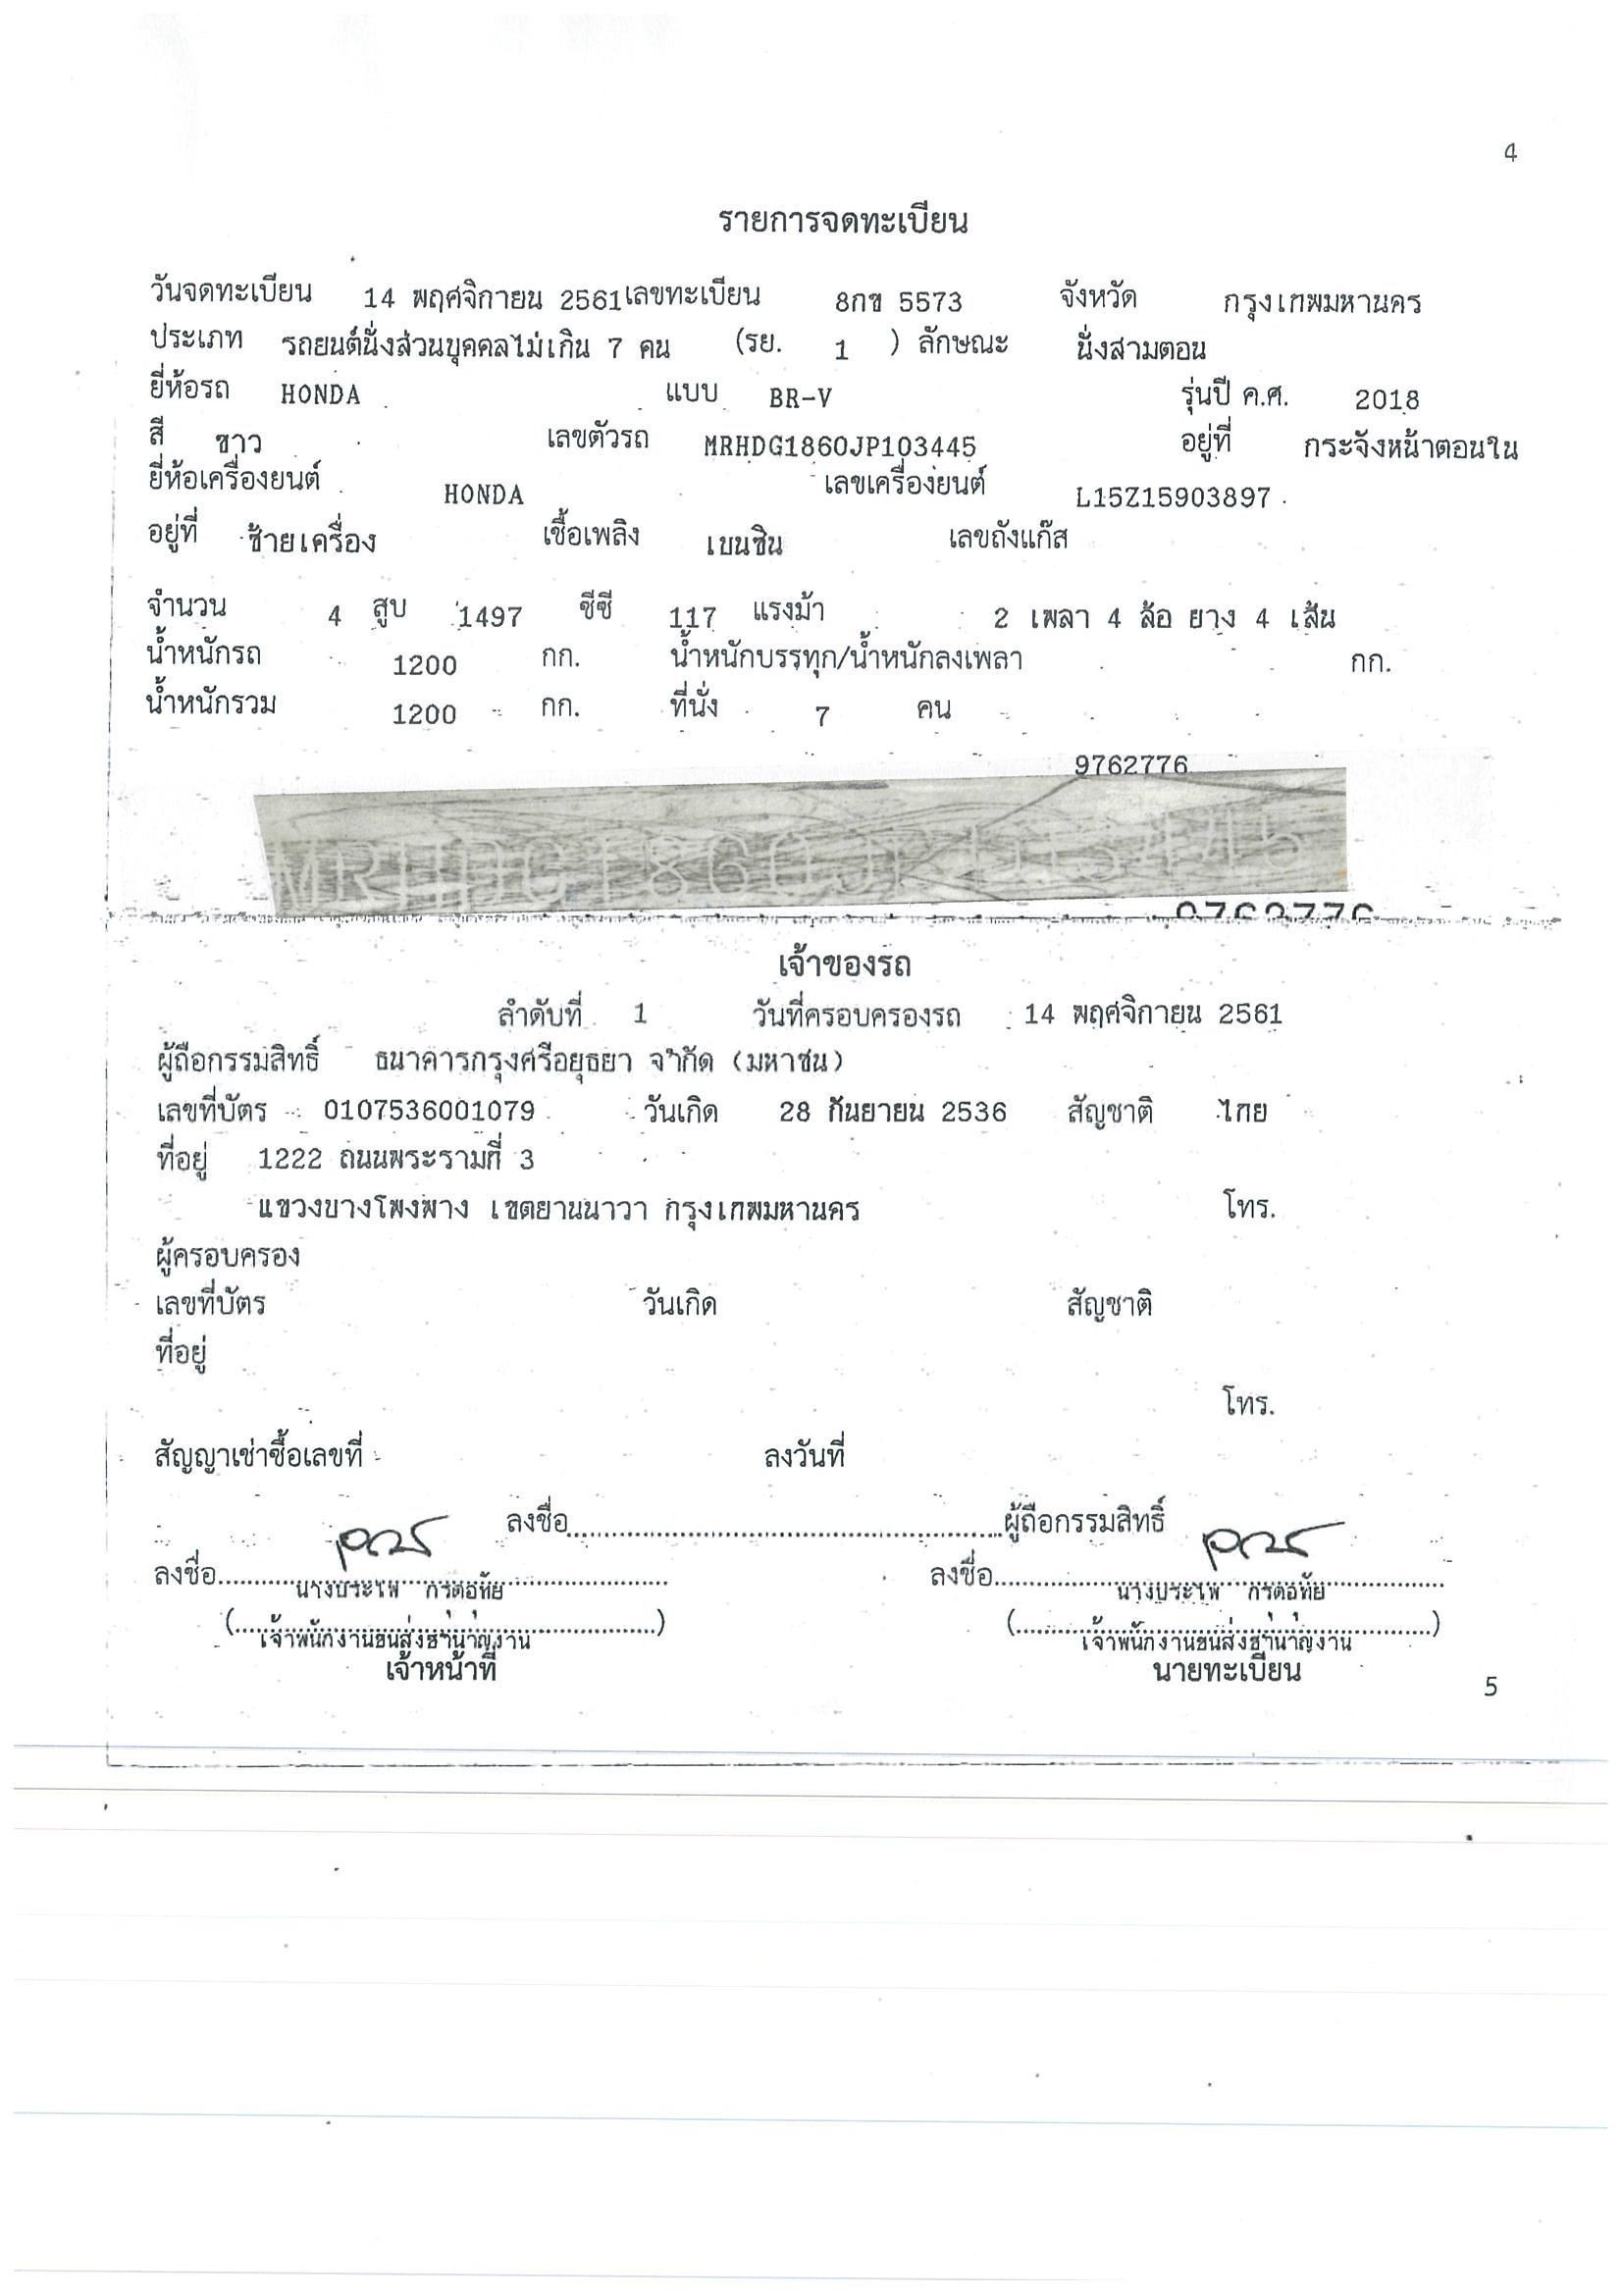 4
รายการจดทะเบียน
วันจดทะเบียน 14 พฤศจิกายน 2561 เลขทะเบียน 8กข 5573 จังหวัด กรุงเทพมหานคร
ประเภท รถยนต์นั่งส่วนบุคคลไม่เกิน 7 คน (รย. 1 ) ลักษณะ นั่งสามตอน
ยี่ห้อรถ HONDA แบบ BR-V รุ่นปี ค.ศ. 2018
สี ขาว เลขตัวรถ MRHDG1860JP103445 อยู่ที่ กระจังหน้าตอนใน
ยี่ห้อเครื่องยนต์ HONDA เลขเครื่องยนต์ L15Z15903897
อยู่ที่ ซ้ายเครื่อง เชื้อเพลิง เบนซิน เลขถังแก๊ส
จำนวน 4 สูบ 1497 ซีซี 117 แรงม้า 2 เพลา 4 ล้อ ยาง 4 เส้น
น้ำหนักรถ 1200 กก. น้ำหนักบรรทุก/น้ำหนักลงเพลา กก.
น้ำหนักรวม 1200 กก. ที่นั่ง 7 คน
9762776
9762776
เจ้าของรถ
ลำดับที่ 1 วันที่ครอบครองรถ 14 พฤศจิกายน 2561
ผู้ถือกรรมสิทธิ์ ธนาคารกรุงศรีอยุธยา จำกัด (มหาชน)
เลขที่บัตร 0107536001079 วันเกิด 28 กันยายน 2536 สัญชาติ ไทย
ที่อยู่ 1222 ถนนพระรามที่ 3
แขวงบางโพงพาง เขตยานนาวา กรุงเทพมหานคร โทร.
ผู้ครอบครอง
เลขที่บัตร วันเกิด สัญชาติ
ที่อยู่
โทร.
สัญญาเช่าซื้อเลขที่ ลงวันที่
ลงชื่อ ผู้ถือกรรมสิทธิ์
ลงชื่อ นางประไพ ลงชื่อ นางประไพ
(เจ้าพนักงานขนส่งชำนาญงาน) (เจ้าพนักงานขนส่งชำนาญงาน)
เจ้าหน้าที่ นายทะเบียน
5